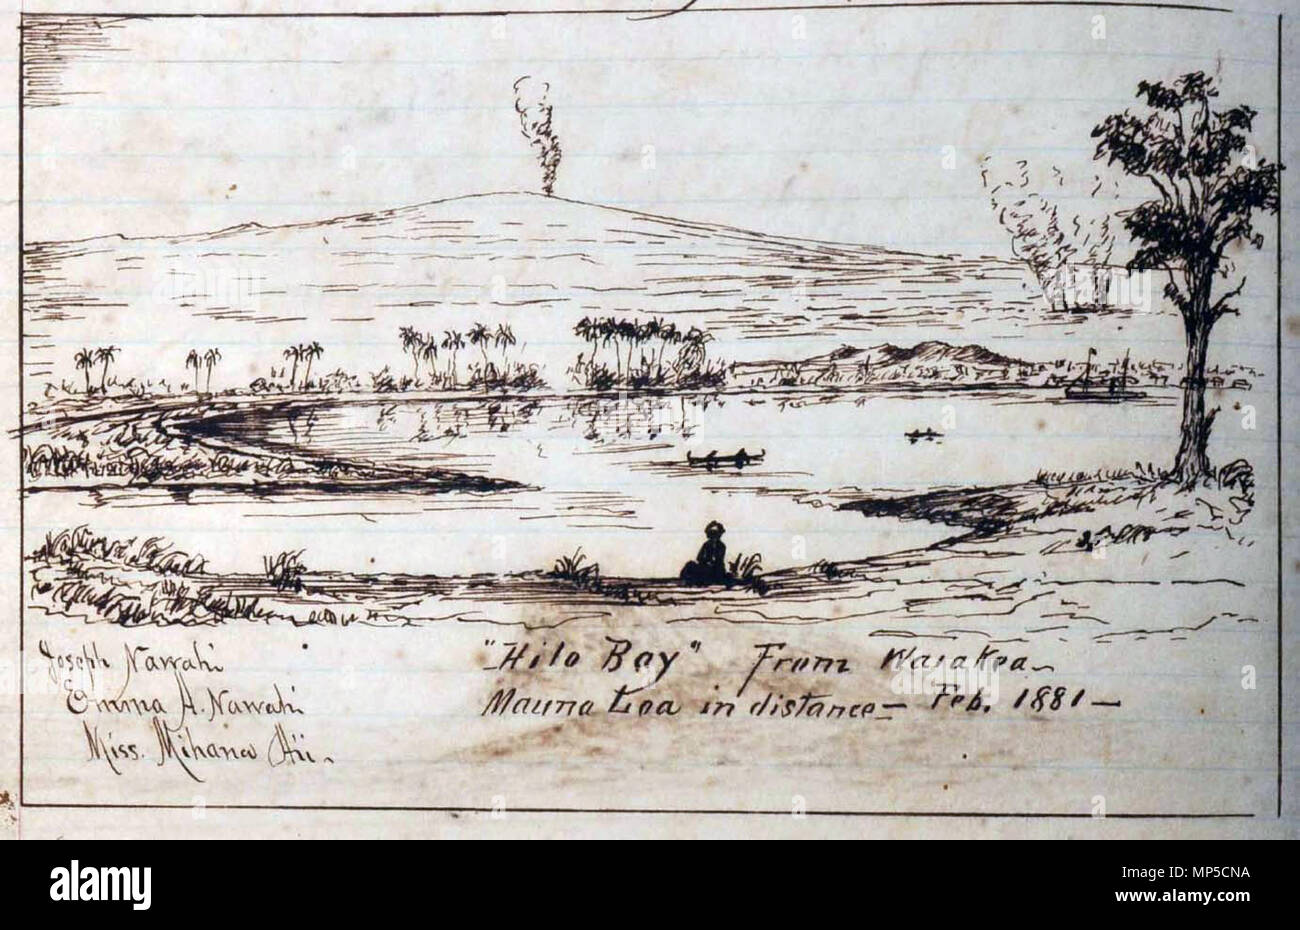 Joseph Nawahi
Emma A. Nawahi
Miss. Mihana Aii.
"Hilo Bay" From Waiakea
Mauna Loa in distance — Feb. 1881 —
alamy
Image ID: MP5CNA
www.alamy.com